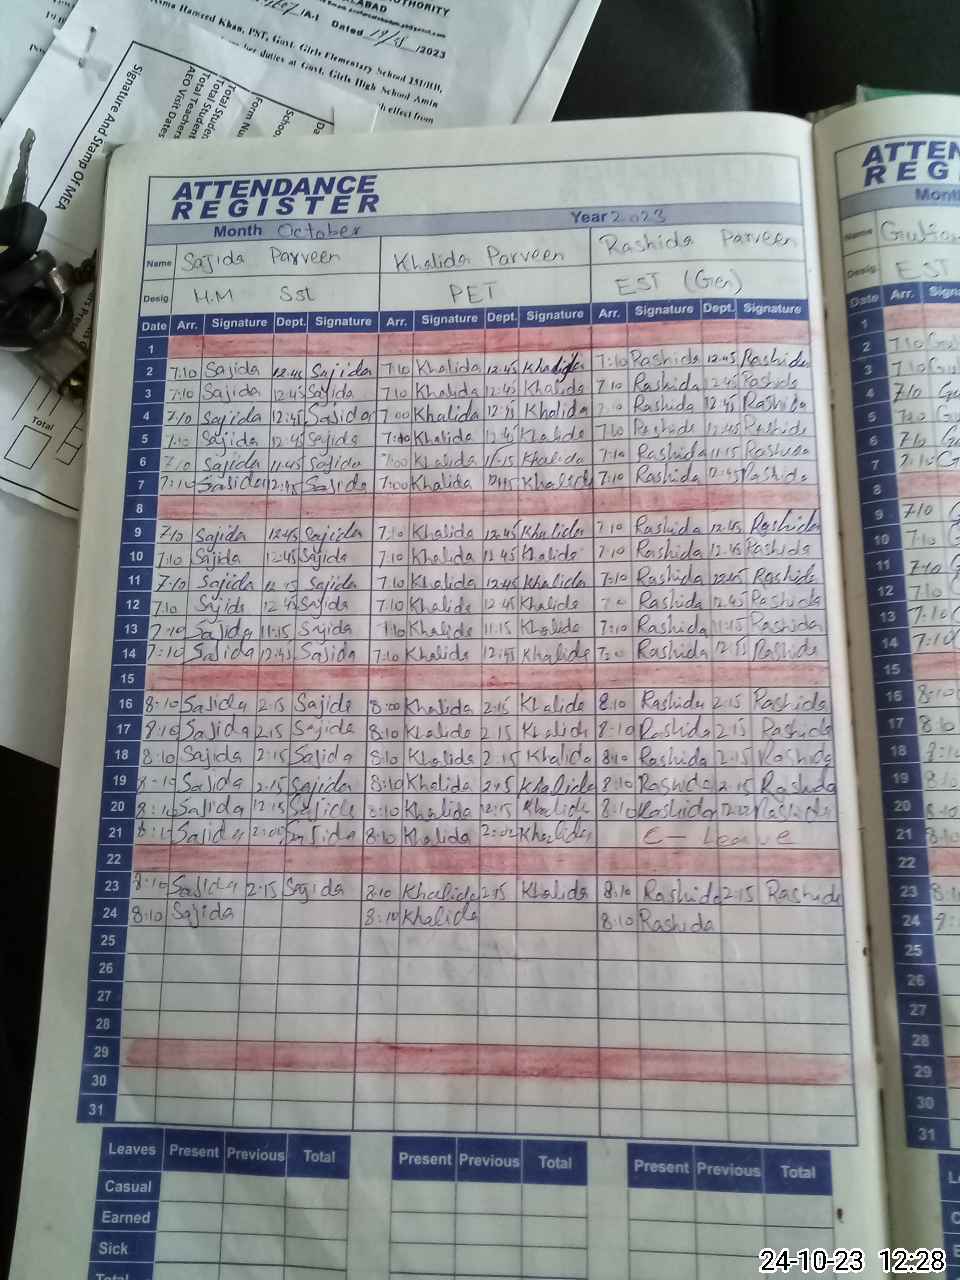 AUTHORITY
/A-1 Dated 19/ /2023
Hameed Khan, PST, Govt. Girls Elementary School 151/RB,
her duties at Govt. Girls High School Amin
effect from
Signature And Stamp Of MEA
AEO Visit Dates
Total Teachers
Form Nu
Total
ATTENDANCE
REGISTER
Month October Year 2023
Name Sajida Parveen Khalida Parveen Rashida Parveen
Desig H.M Sst PET EST (Gen)
Date Arr. Signature Dept. Signature Arr. Signature Dept. Signature Arr. Signature Dept. Signature
1
2 7:10 Sajida 12:45 Sajida 7:10 Khalida 12:45 Khalida 7:10 Rashida 12:45 Rashida
3 7:10 Sajida 12:45 Sajida 7:10 Khalida 12:45 Khalida 7:10 Rashida 12:45 Rashida
4 7:10 Sajida 12:45 Sajida 7:00 Khalida 12:45 Khalida Rashida 12:45 Rashida
5 7:10 Sajida 12:45 Sajida 7:00 Khalida 12:45 Khalida 7:10 Rashida 12:45 Rashida
6 7:10 Sajida 11:45 Sajida 7:00 Khalida 11:15 Khalida 7:10 Rashida 11:15 Rashida
7 7:10 Sajida 12:45 Sajida 7:00 Khalida 12:45 Khalida 7:10 Rashida 12:45 Rashida
8
9 7:10 Sajida 12:45 Sajida 7:10 Khalida 12:45 Khalida 7:10 Rashida 12:45 Rashida
10 7:10 Sajida 12:45 Sajida 7:10 Khalida 12:45 Khalida 7:10 Rashida 12:45 Rashida
11 7:10 Sajida Sajida 7:10 Khalida 12:45 Khalida 7:10 Rashida 12:45 Rashida
12 7:10 Sajida 12:45 Sajida 7:10 Khalida 12:45 Khalida Rashida 12:45 Rashida
13 7:10 Sajida 11:15 Sajida 7:10 Khalida 11:15 Khalida 7:10 Rashida 11:15 Rashida
14 7:10 Sajida 12:45 Sajida 7:10 Khalida 12:45 Khalida Rashida Rashida
15
16 8:10 Sajida 2:15 Sajida 8:00 Khalida 2:15 Khalida 8:10 Rashida 2:15 Rashida
17 8:10 Sajida 2:15 Sajida 8:10 Khalida 2:15 Khalida 8:10 Rashida 2:15 Rashida
18 8:10 Sajida 2:15 Sajida 8:10 Khalida 2:15 Khalida 8:10 Rashida 2:15 Rashida
19 8:10 Sajida 2:15 Sajida 8:10 Khalida 2:15 Khalida 8:10 Rashida 2:15 Rashida
20 8:10 Sajida 12:15 Sajida 8:10 Khalida 12:15 Khalida 8:10 Rashida Rashida
21 8:10 Sajida 2:00 Sajida 8:10 Khalida 2:00 Khalida C - Leave
22
23 8:10 Sajida 2:15 Sajida 8:10 Khalida 2:15 Khalida 8:10 Rashida 2:15 Rashida
24 8:10 Sajida 8:10 Khalida 8:10 Rashida
25
26
27
28
29
30
31
Leaves Present Previous Total Present Previous Total Present Previous Total
Casual
Earned
Sick
Total
ATTEN
REG
Month
Name
Desig. EST
Date Arr. Signa
1
2 7:10
3 7:10
4 7:10
5 7:10
6 7:10
7 7:10
8
9 7:10
10 7:10
11 7:10
12 7:10
13 7:10
14 7:10
15
16 8:10
17 8:10
18 8:10
19 8:10
20 8:10
21 8:10
22
23 8:10
24
25
26
27
28
29
30
31
24-10-23 12:28